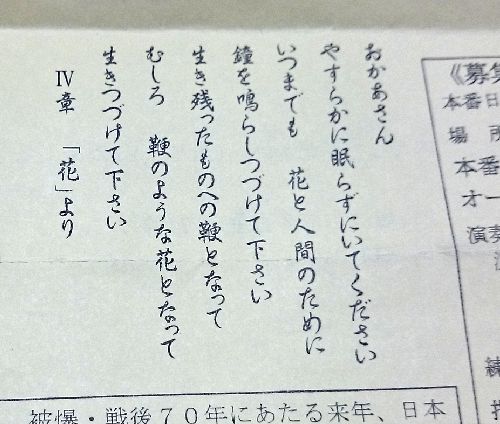 おかあさん
やすらかに眠らずにいてください
いつまでも　花と人間のために
鐘を鳴らしつづけて下さい
生き残ったものへの鞭となって
むしろ　鞭のような花となって
生きつづけて下さい
Ⅳ章　「花」より
《募集
本番日
場　所
本番
オー
演奏
練
指
被爆・戦後７０年にあたる来年、日本